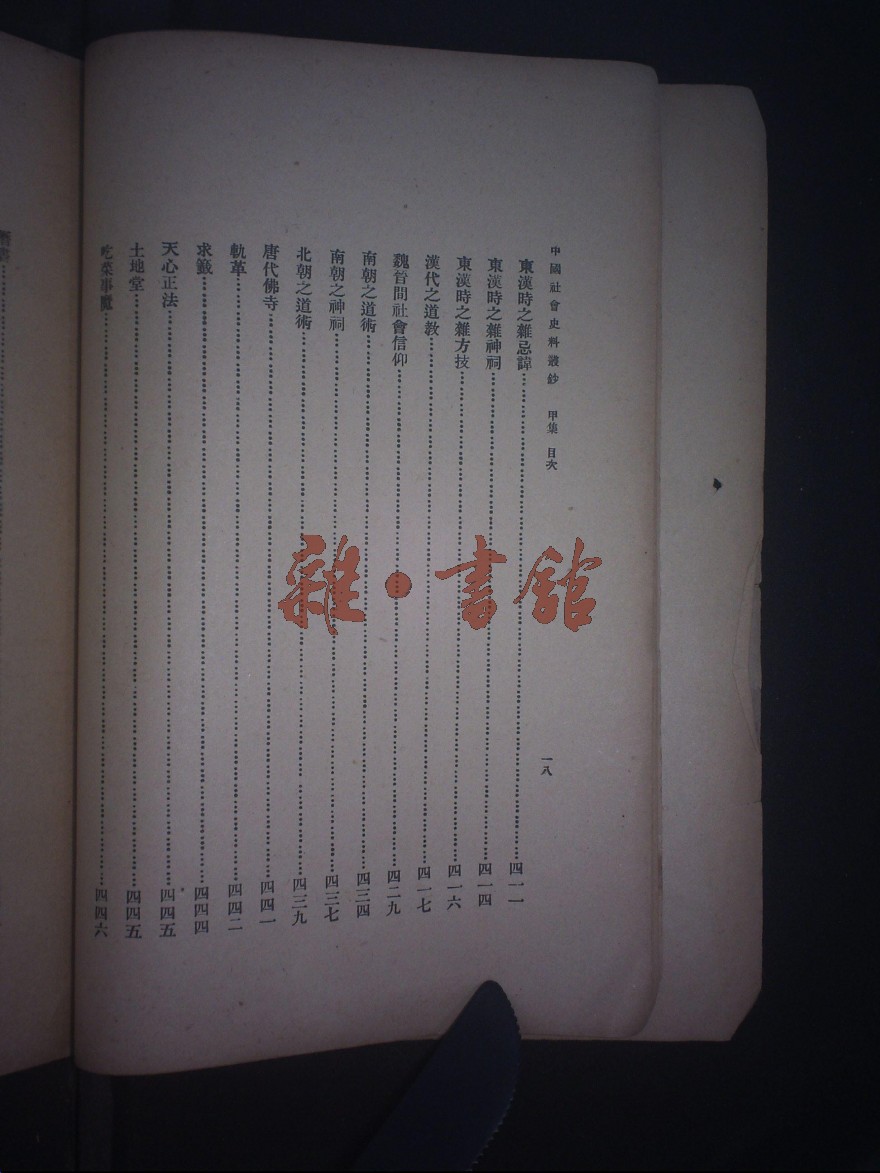 中國社會史料叢鈔 甲集 目次 一八
東漢時之雜忌諱……四一一
東漢時之雜神祠……四一四
東漢時之雜方技……四一六
漢代之道教……四一七
魏晉間社會信仰……四二九
南朝之道術……四三四
南朝之神祠……四三七
北朝之道術……四三九
唐代佛寺……四四一
軌革……四四二
求籤……四四四
天心正法……四四五
土地堂……四四五
吃菜事魔……四四六
雜·書館